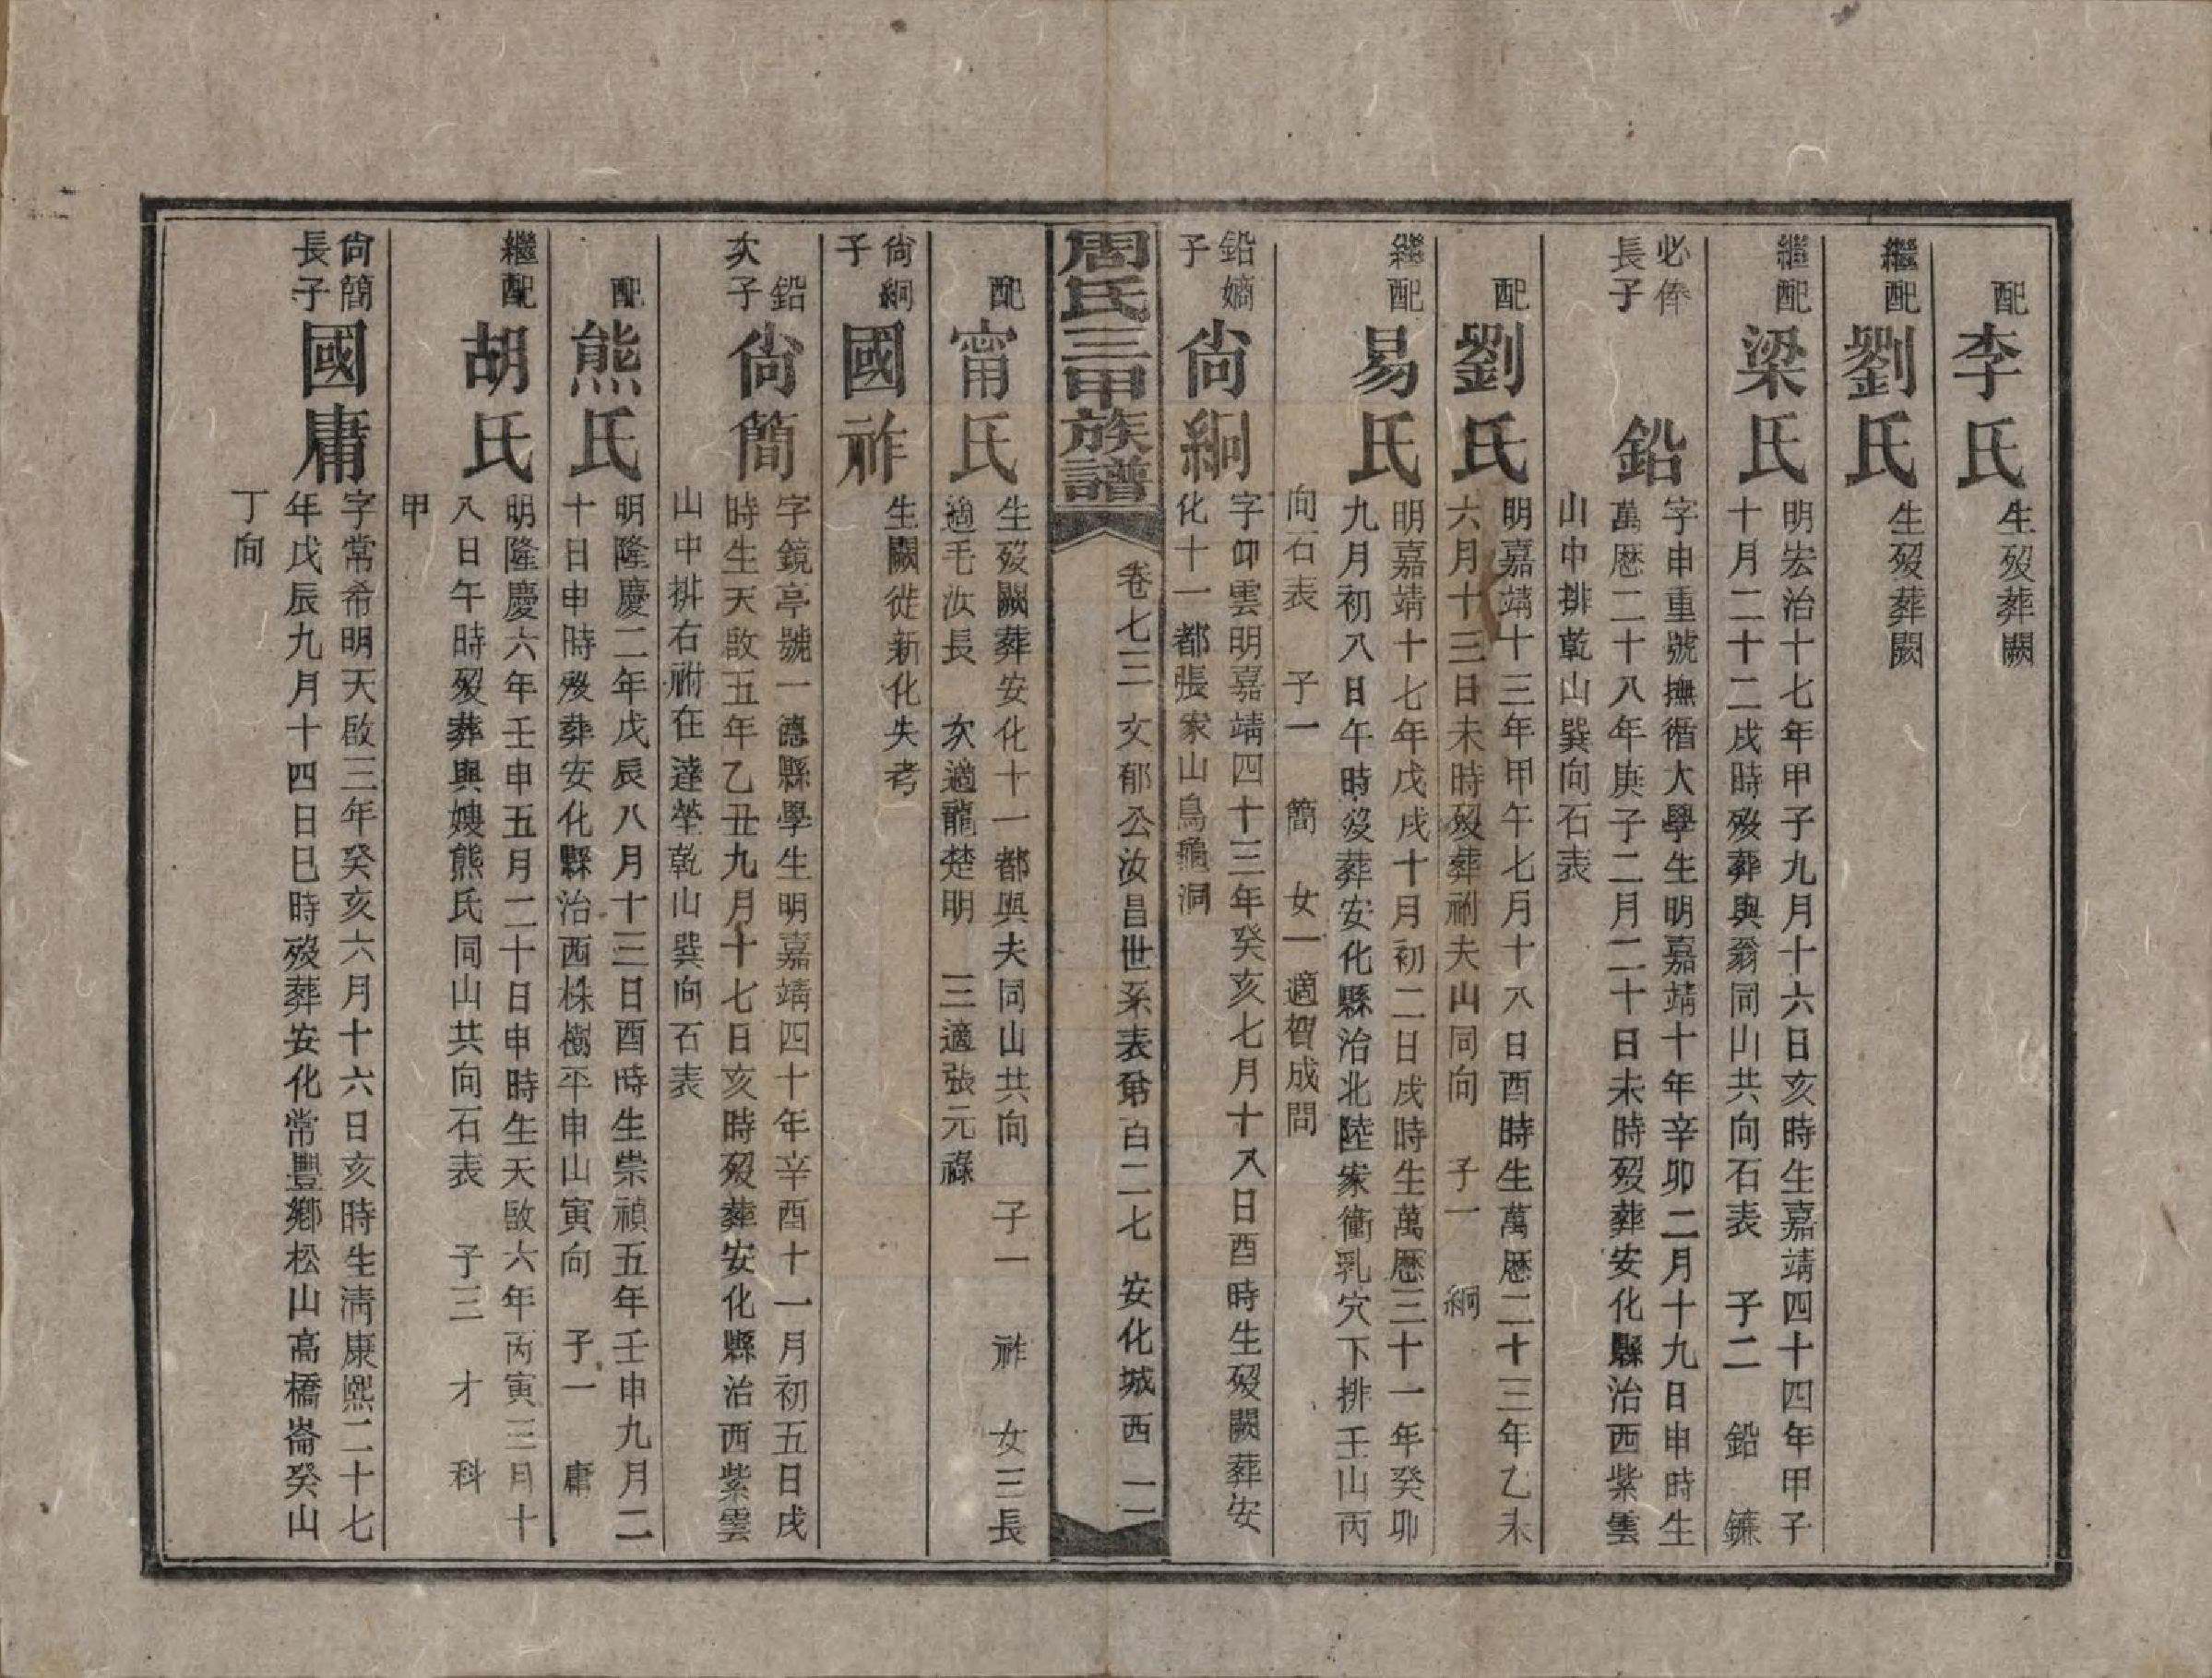 配
李氏
生歿葬闕
繼配
劉氏
生歿葬闕
繼配
梁氏
明宏治十七年甲子九月十六日亥時生嘉靖四十四年甲子
十月二十二戌時歿葬與翁同山共向石表　子二　鉛　鐮
必俸
長子
鉛
字申重號撫循大學生明嘉靖十年辛卯二月十九日申時生
萬厯二十八年庚子二月二十日未時歿葬安化縣治西紫雲
山中排乾山巽向石表
配
劉氏
明嘉靖十三年甲午七月十八日酉時生萬厯二十三年乙未
六月十三日未時歿葬祔夫山同向　子一　絅
繼配
易氏
明嘉靖十七年戊戌十月初二日戌時生萬厯三十一年癸卯
九月初八日午時歿葬安化縣治北陸家衝乳穴下排壬山丙
向石表　子一　簡　女一適賀成問
鉛嫡
子
尙絅
字仰雲明嘉靖四十三年癸亥七月十八日酉時生歿闕葬安
化十一都張家山鳥龜洞
周氏三甲族譜
卷七三　文郁公汝昌世系表第百二七　安化城西　二
配
甯氏
生歿闕葬安化十一都與夫同山共向　子一　祚　女三長
適毛汝長　次適龍楚明　三適張元祿
尙絅
子
國祚
生闕徙新化失考
鉛
次子
尙簡
字鏡亭號一德縣學生明嘉靖四十年辛酉十一月初五日戌
時生天啟五年乙丑九月十七日亥時歿葬安化縣治西紫雲
山中排右祔在達塋乾山巽向石表
配
熊氏
明隆慶二年戊辰八月十三日酉時生崇禎五年壬申九月二
十日申時歿葬安化縣治西株樹平申山寅向　子一　庸
繼配
胡氏
明隆慶六年壬申五月二十日申時生天啟六年丙寅三月十
八日午時歿葬與嫂熊氏同山共向石表　子三　才　科
甲
尙簡
長子
國庸
字常希明天啟三年癸亥六月十六日亥時生淸康熙二十七
年戊辰九月十四日巳時歿葬安化常豐鄉松山高橋崙癸山
丁向